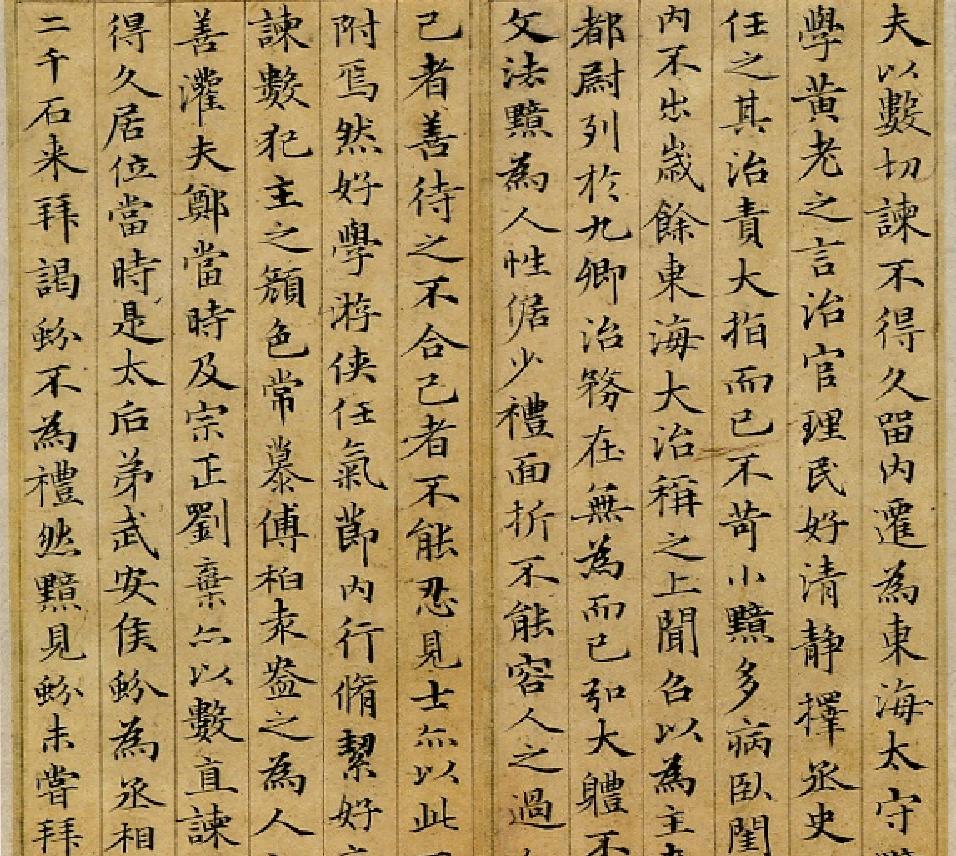 夫以數切諫不得久留內遷為東海太守黯
學黃老之言治官理民好清静擇丞史
任之其治責大指而已不苛小黯多病臥閨
內不出歲餘東海大治稱之上聞召以為主
都尉列於九卿治務在無為而已弘大體不
文法黯為人性倨少禮面折不能容人之過
己者善待之不合己者不能忍見士亦以此
附焉然好學游俠任氣節內行脩絜好
諫數犯主之顏色常慕傅柏袁盎之為人
善灌夫鄭當時及宗正劉棄亦以數直諫
得久居位當時是太后弟武安侯蚡為丞相
二千石来拜謁蚡不為禮然黯見蚡未嘗拜